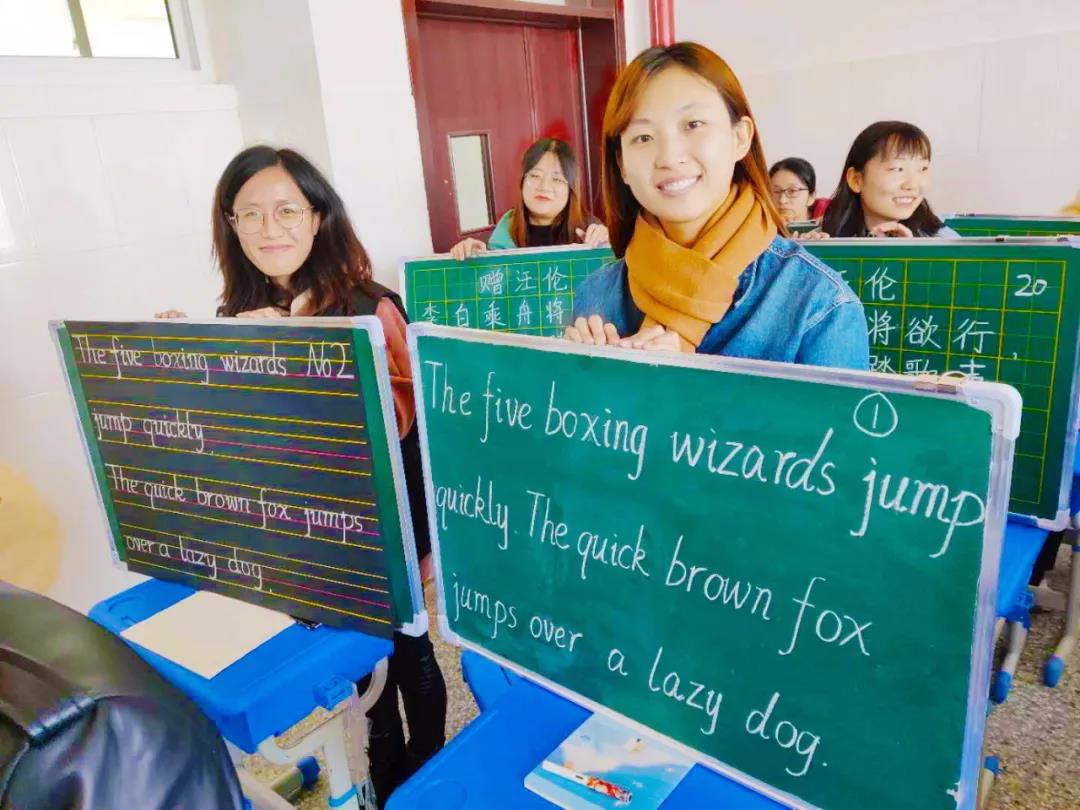 The five boxing wizards No2
jump quickly.
The quick brown fox jumps
over a lazy dog.
①
The five boxing wizards jump
quickly. The quick brown fox
jumps over a lazy dog.
赠汪伦
李白乘舟将
伦 20
将欲行,
踏歌声